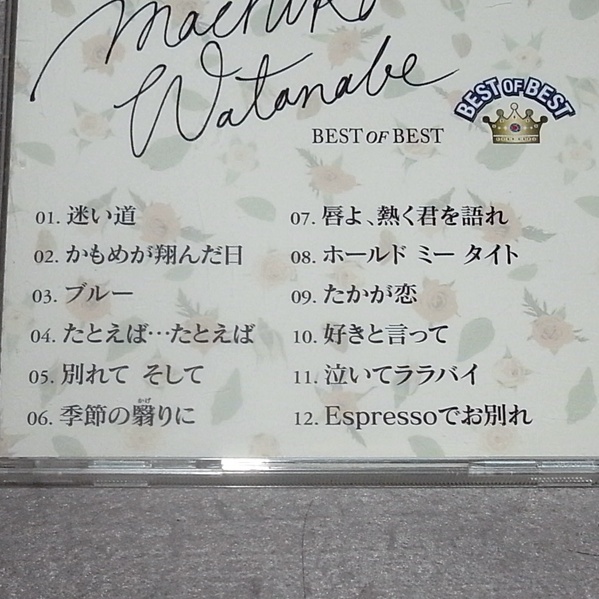 Machiko
Watanabe
BEST OF BEST
BEST OF BEST
01. 迷い道
02. かもめが翔んだ日
03. ブルー
04. たとえば…たとえば
05. 別れて そして
06. 季節の翳りに
かげ
07. 唇よ、熱く君を語れ
08. ホールド ミー タイト
09. たかが恋
10. 好きと言って
11. 泣いてララバイ
12. Espressoでお別れ